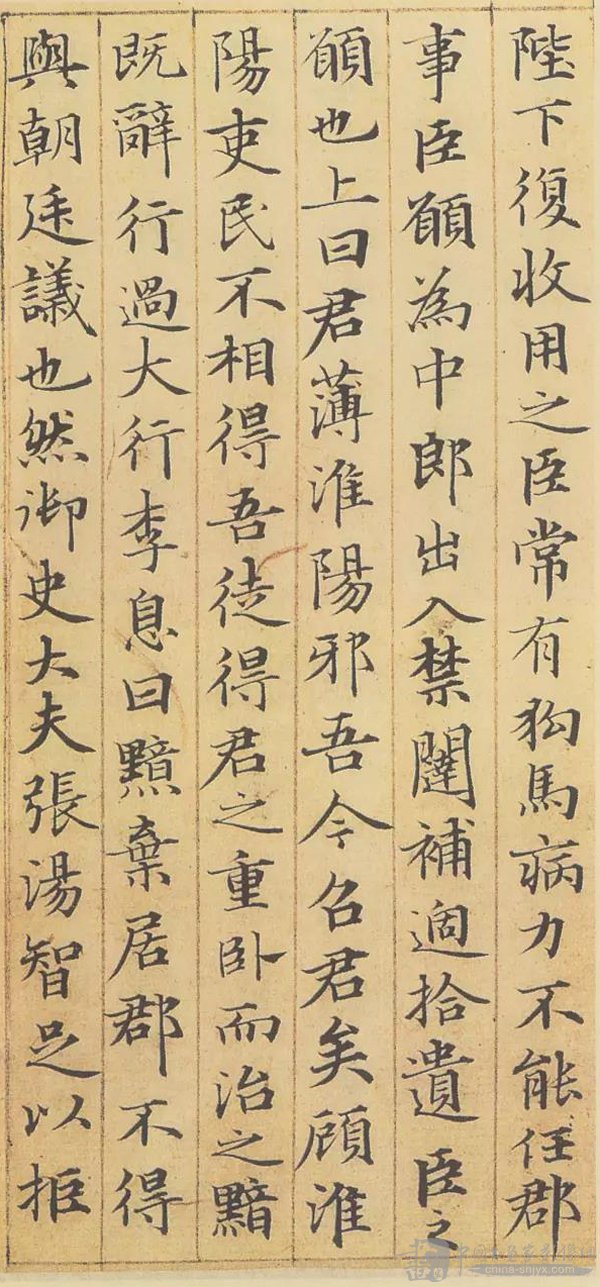 陛下復收用之臣常有狗馬病力不能任郡
事臣願為中郎出入禁闥補過拾遺臣之
願也上曰君薄淮陽邪吾今召君矣顧淮
陽吏民不相得吾徒得君之重卧而治之黯
既辭行過大行李息曰黯棄居郡不得
與朝廷議也然御史大夫張湯智足以拒
china-shjyx.com